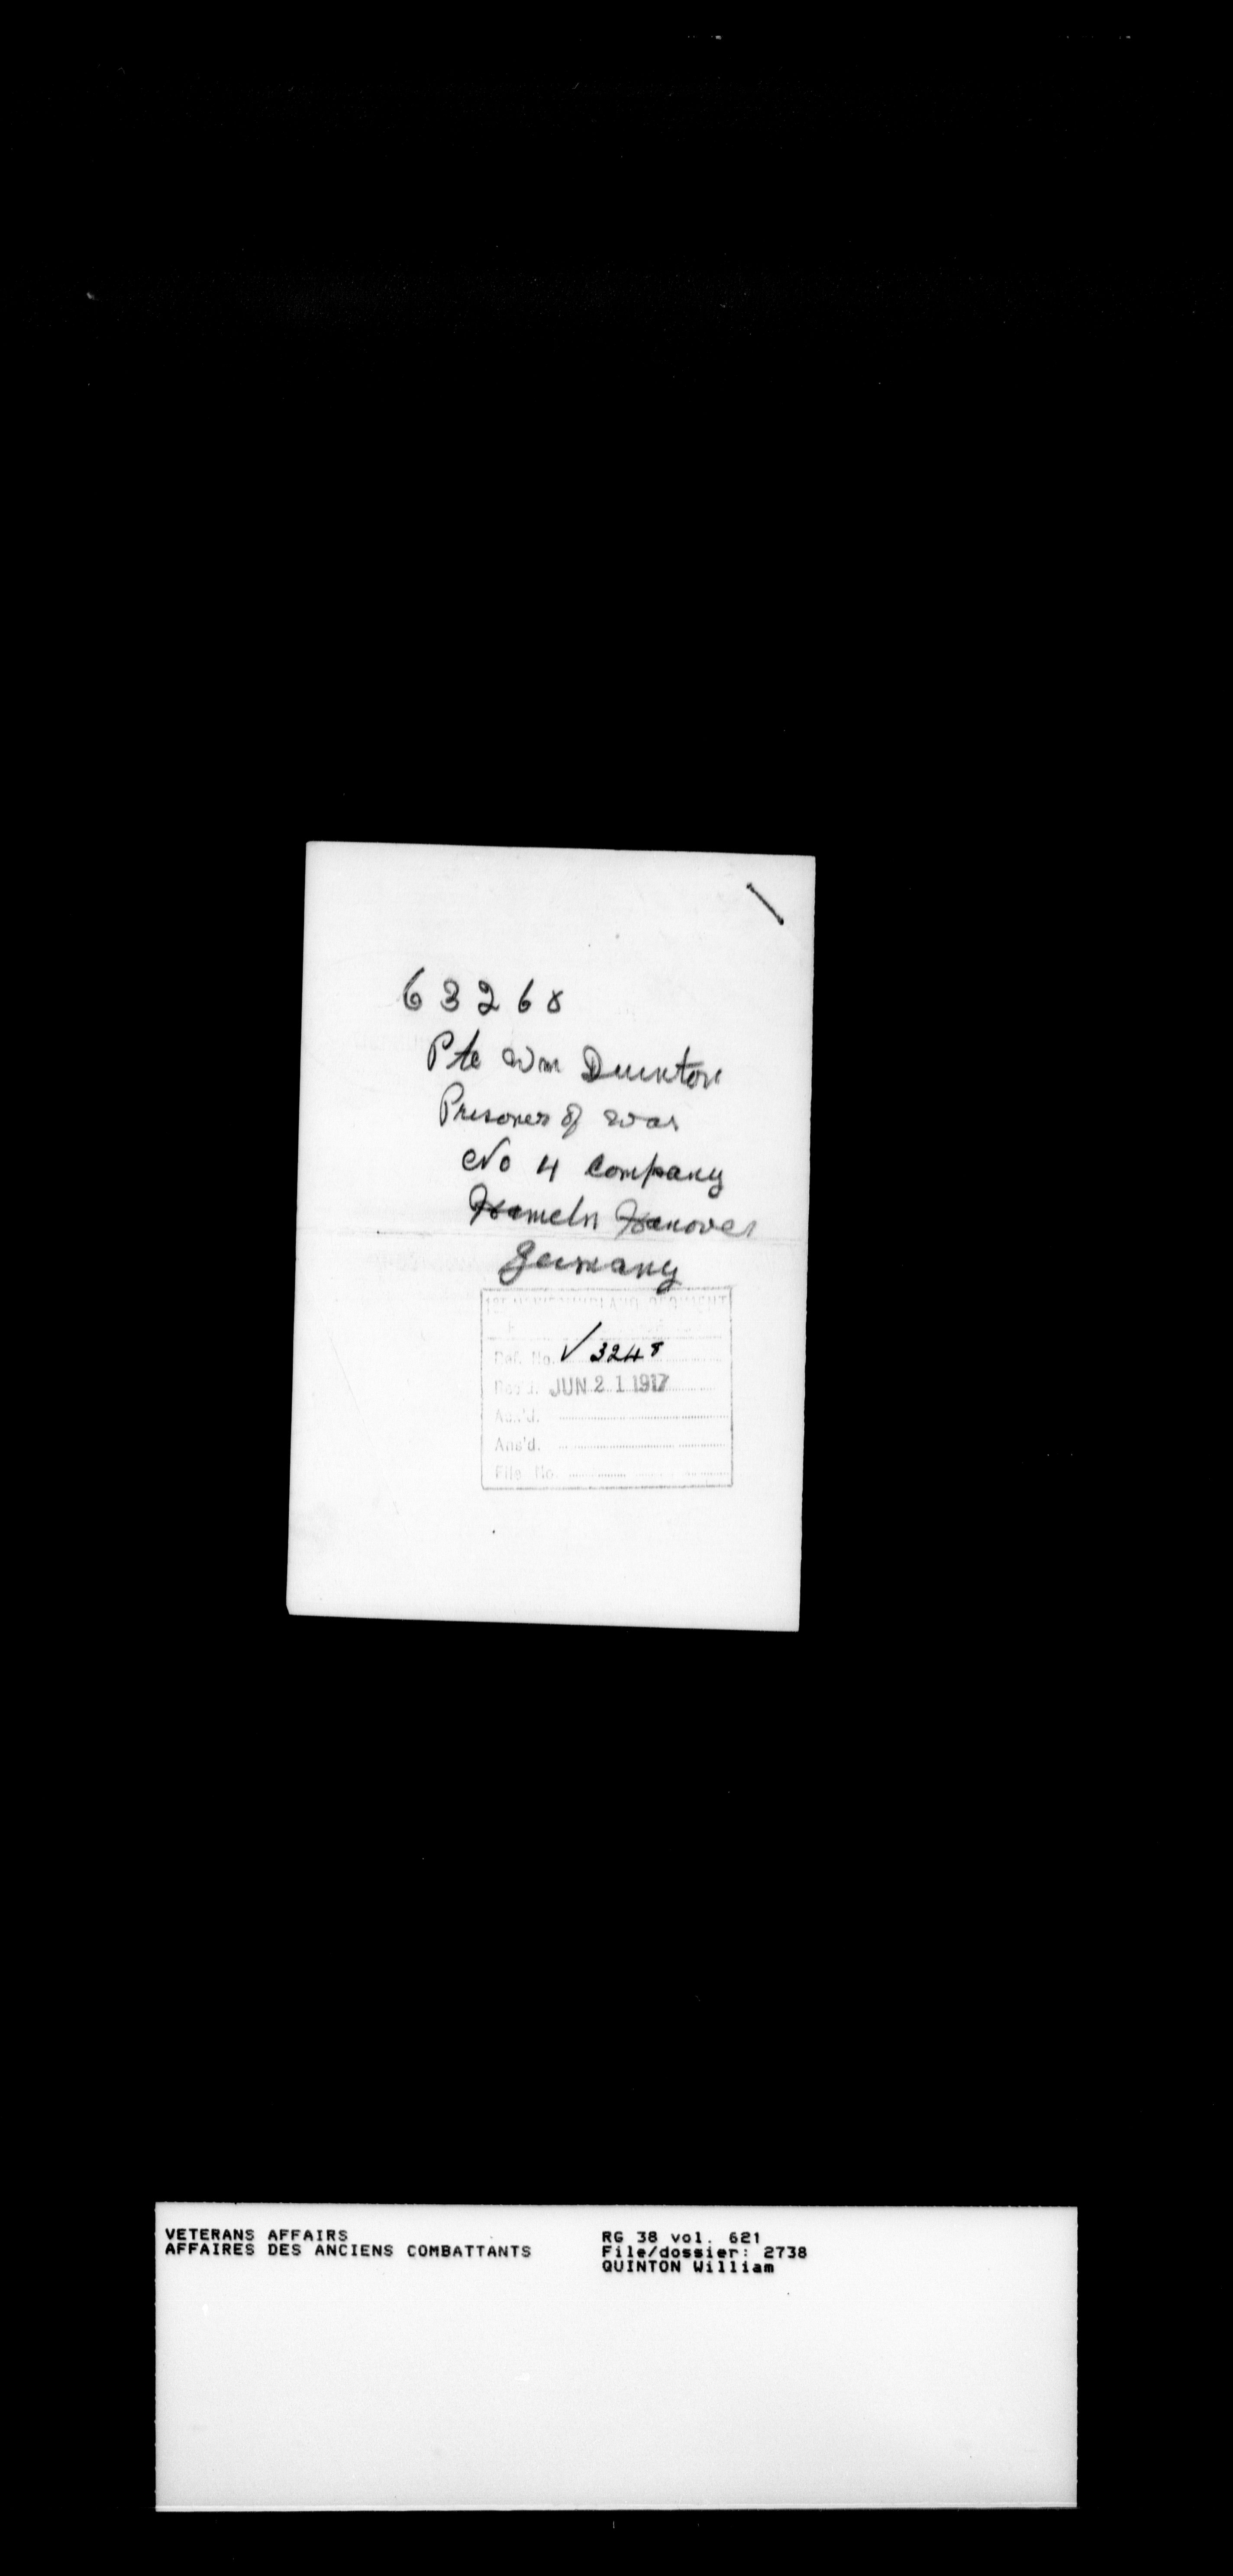 63268
Pte Wm Quinton
Prisoner of war
No 4 Company
Hameln Hanover
Germany
1ST NEWFOUNDLAND REGIMENT
Ref. No. √ 3248
Rec'd. JUN 21 1917
Ack'd.
Ans'd.
File No.
VETERANS AFFAIRS
AFFAIRES DES ANCIENS COMBATTANTS
RG 38 vol. 621
File/dossier: 2738
QUINTON William